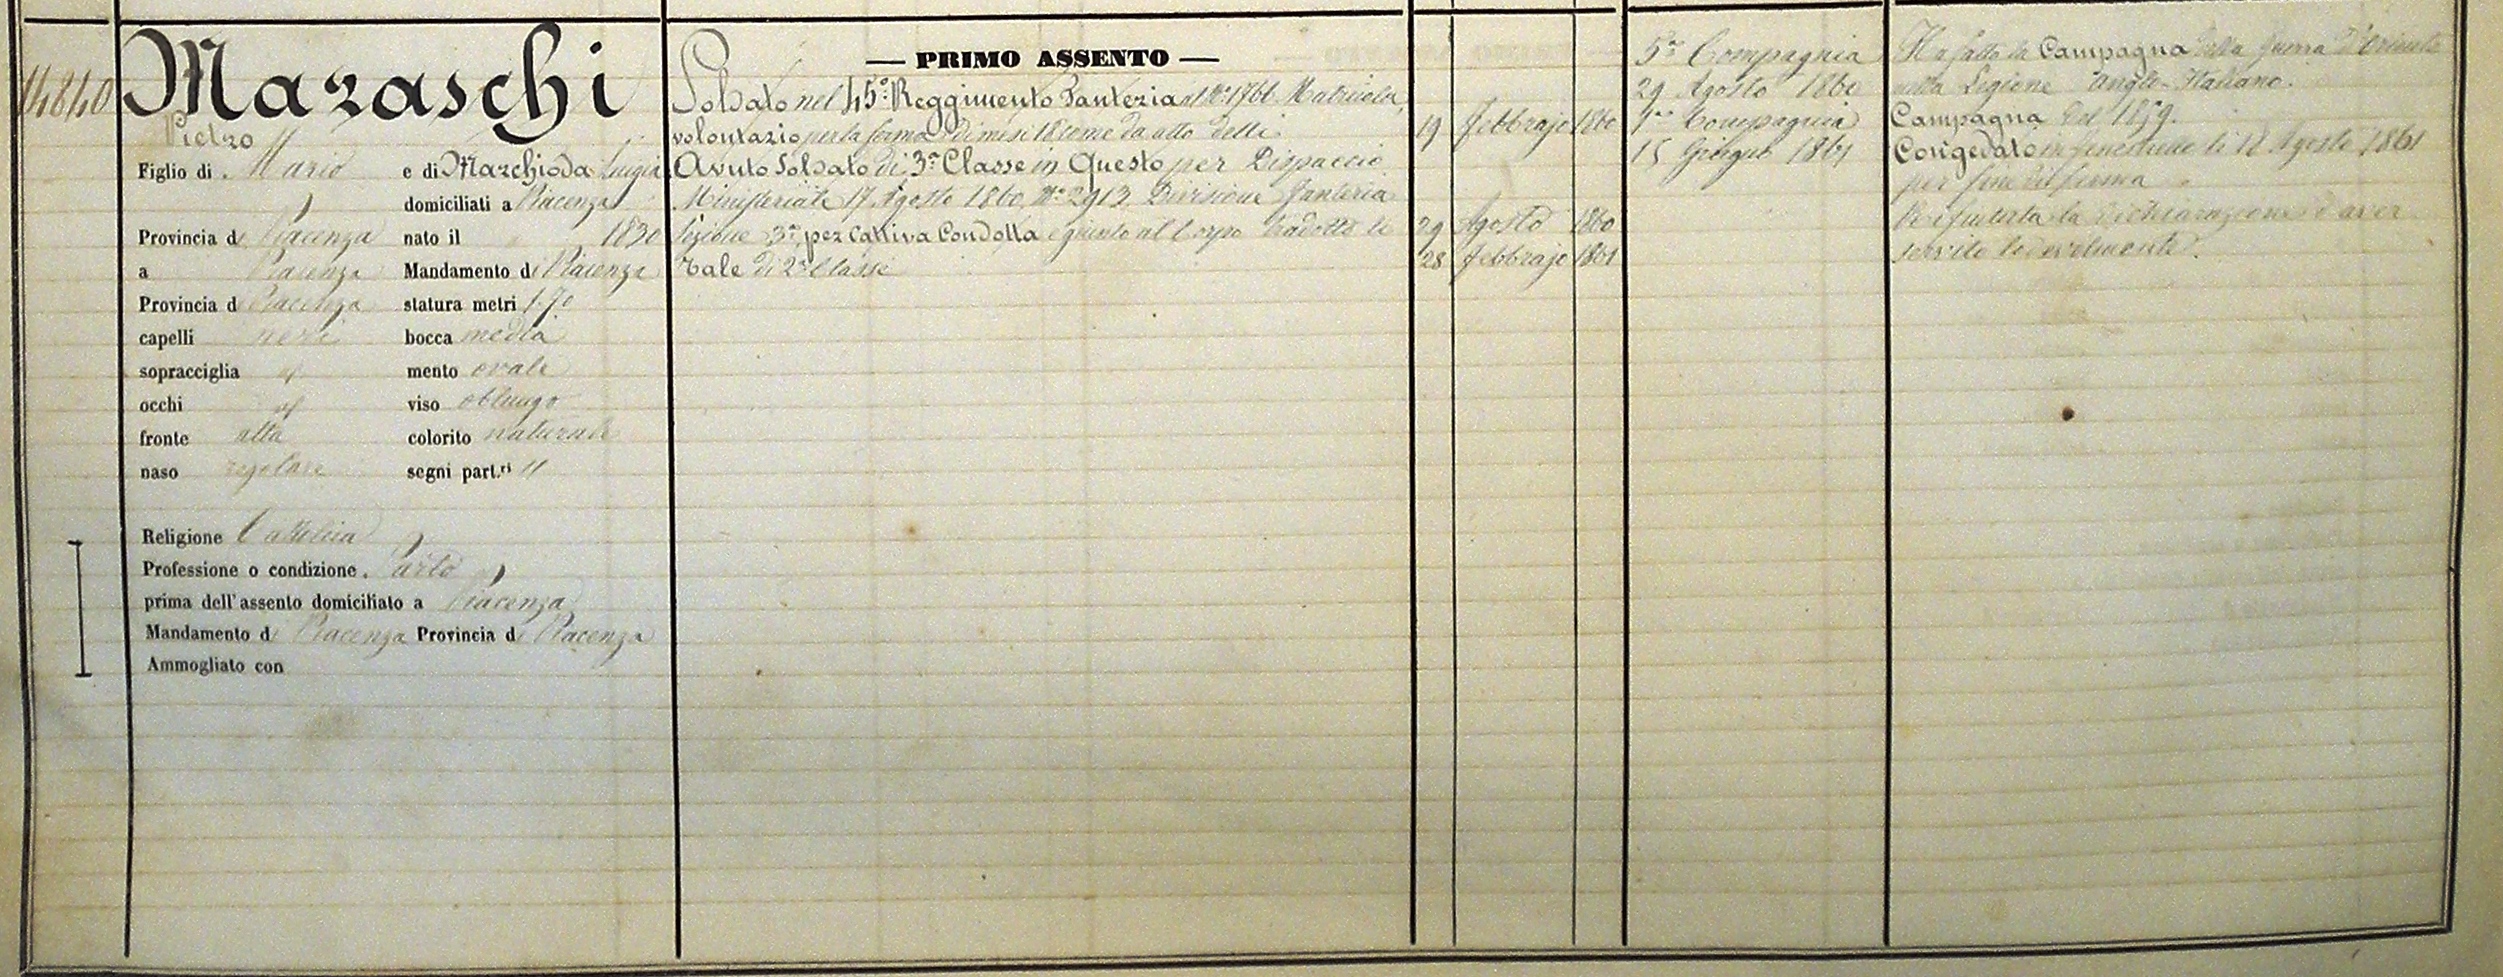 14840
Maraschi
Pietro
Figlio di Mario e di Marchioda Luigia
domiciliati a Piacenza
Provincia di Piacenza nato il 1830
a Piacenza Mandamento di Piacenza
Provincia di Piacenza statura metri 1.70
capelli neri bocca media
sopracciglia id mento ovale
occhi id viso oblungo
fronte alta colorito naturale
naso regolare segni part.ri "
Religione Cattolica
Professione o condizione. Sarto
prima dell'assento domiciliato a Piacenza
Mandamento di Piacenza Provincia di Piacenza
Ammogliato con
— PRIMO ASSENTO —
Soldato nel 45° Reggimento Fanteria al N° 1766 Matricola,
volontario per la ferma di mesi 18 come da atto delli 19 Febbrajo 1860
Avuto Soldato di 3a Classe in Questo per Dispaccio
Ministeriale 17 Agosto 1860 N° 2913 Divisione Fanteria
Sezione 3a per Cattiva Condotta e giunto al Corpo tradotto li 29 Agosto 1860
Tale di 2a Classe 28 Febbrajo 1861
5a Compagnia
29 Agosto 1860
1a Compagnia
15 Giugno 1861
Ha fatto la Campagna della guerra d'Oriente
nella Legione Anglo-Italiana.
Campagna del 1859.
Congedato in li 18 Agosto 1861
per fine di ferma
la dichiarazione d'aver
servito lodevolmente.